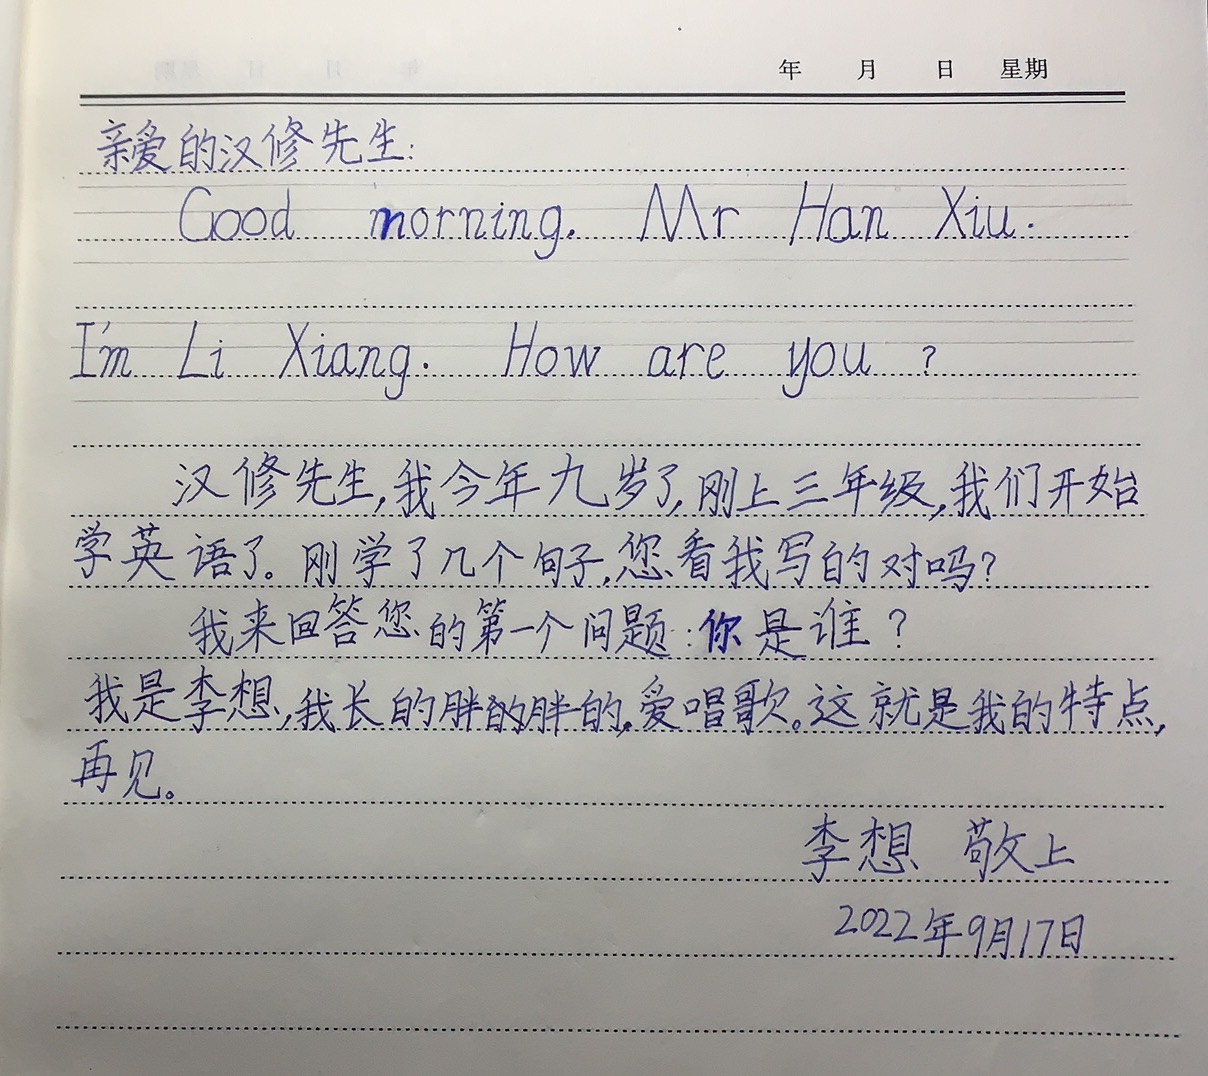 年 月 日 星期
亲爱的汉修先生:
Good morning. Mr Han Xiu.
I'm Li Xiang. How are you ?
汉修先生,我今年九岁了,刚上三年级,我们开始
学英语了。刚学了几个句子,您看我写的对吗?
我来回答您的第一个问题:你是谁?
我是李想,我长的胖的胖的,爱唱歌。这就是我的特点,
再见。
李想 敬上
2022年9月17日